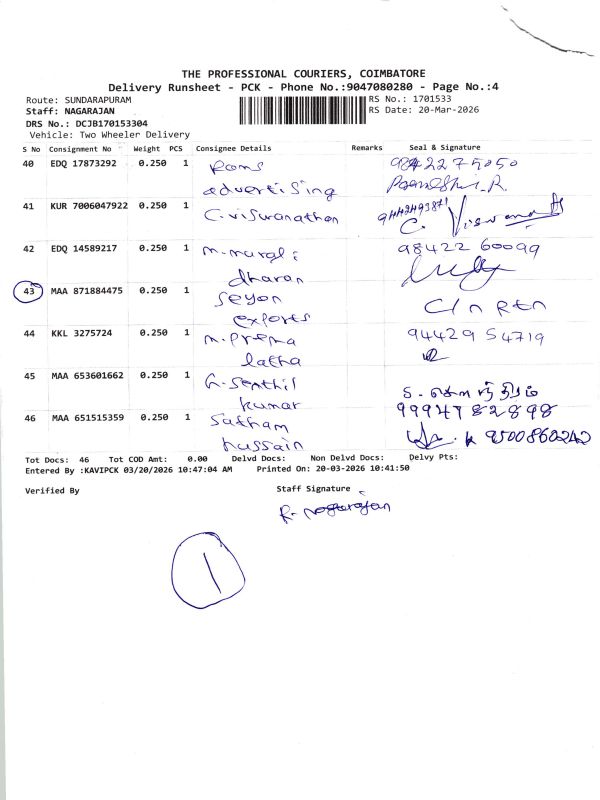 THE PROFESSIONAL COURIERS, COIMBATORE
Delivery Runsheet - PCK - Phone No.:9047080280 - Page No.:4
Route: SUNDARAPURAM RS No.: 1701533
Staff: NAGARAJAN RS Date: 20-Mar-2026
DRS No.: DCJB170153304
Vehicle: Two Wheeler Delivery
S No Consignment No Weight PCS Consignee Details Remarks Seal & Signature
40 EDQ 17873292 0.250 1 Rams 9842275050
advertising
41 KUR 7006047922 0.250 1 C.viswanathan 9442493871
C. Viswanath
42 EDQ 14589217 0.250 1 m.murali 98422 60099
dharan
43 MAA 871884475 0.250 1 Seyon C/n Rtn
exports
44 KKL 3275724 0.250 1 m.prema 94429 54719
latha
45 MAA 653601662 0.250 1 senthil
kumar 9994782898
46 MAA 651515359 0.250 1 Satham 9500860242
hussain
Tot Docs: 46 Tot COD Amt: 0.00 Delvd Docs: Non Delvd Docs: Delvy Pts:
Entered By :KAVIPCK 03/20/2026 10:47:04 AM Printed On: 20-03-2026 10:41:50
Verified By Staff Signature
R. nagarajan
1